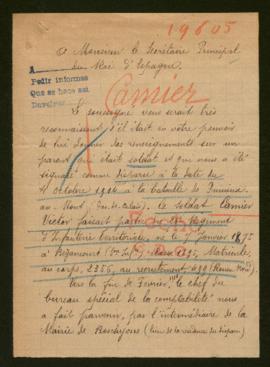 19605
à Monsieur le Secrétaire Principal
du Roi d'Espagne.
Pedir informes
Que se hace así
Camier
Le soussigné vous serait très
reconnaissant s'il était en votre pouvoir
de lui donner des renseignements sur un
parent qui était soldat et que nous a été
signalé comme disparu à la date du
4 octobre 1914 à la bataille de
au Nord (Pas-de-Calais). Le soldat Camier
Victor faisait partie du Régiment
d'Infanterie territoriale, né le 7 janvier 18
à Classe 1895, Matricule
au corps, 2356, au recrutement 639
Vers la fin de février, le chef du
bureau spécial de la comptabilité nous
a fait parvenir, par l'intermédiaire de la
Mairie de (lieu de la résidence du disparu)